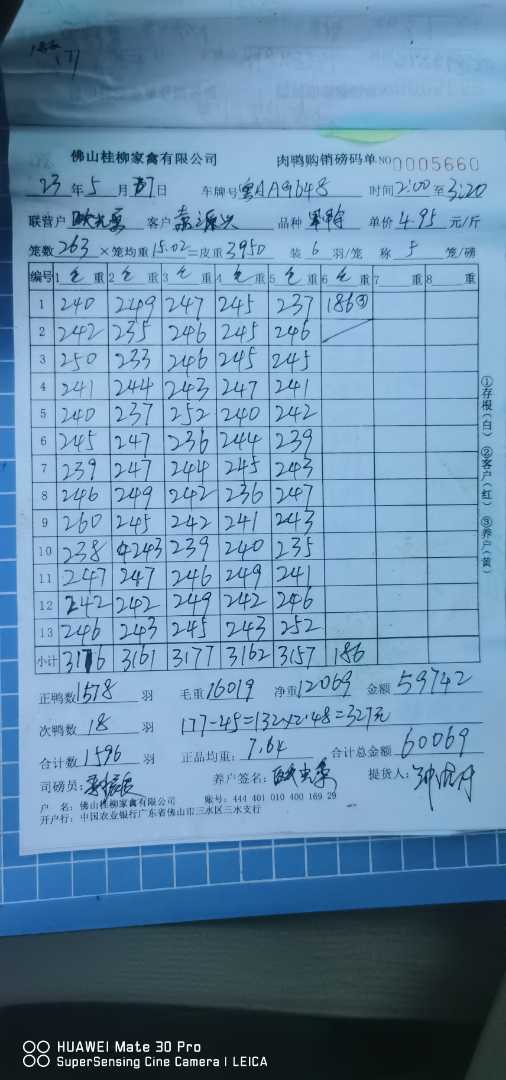 佛山桂柳家禽有限公司 肉鸭购销磅码单 NO 0005660
23 年 5 月 日 车牌号 粤AA9648 时间 2:00 至 3:20
联营户 客户 品种 单价 4.95 元/斤
笼数 263 ×笼均重 15.02 =皮重 3950 装 6 羽/笼 称 5 笼/磅
编号 1 毛 重 2 毛 重 3 毛 重 4 毛 重 5 毛 重 6 毛 重 7 重 8 重
1 240 249 247 245 237 186③
2 242 235 246 245 246
3 250 233 246 245 245
4 241 244 243 247 241
5 240 237 252 240 242
6 245 247 236 244 239
7 239 247 244 245 243
8 246 249 242 236 247
9 260 245 242 241 243
10 238 243 239 240 235
11 247 247 246 249 241
12 242 242 249 242 246
13 246 243 245 243 252
小计 3176 3161 3177 3162 3157 186
正鸭数 1578 羽 毛重 16019 净重 12069 金额 59742
次鸭数 18 羽 177-45=132×2.48=327元
合计数 1596 羽 正品均重: 7.64 合计总金额 60069
司磅员: 养户签名: 提货人:
户 名: 佛山桂柳家禽有限公司 账号: 444 401 010 400 169 29
开户行: 中国农业银行广东省佛山市三水区三水支行
①存根(白) ②客户(红) ③养户(黄)
HUAWEI Mate 30 Pro
SuperSensing Cine Camera | LEICA